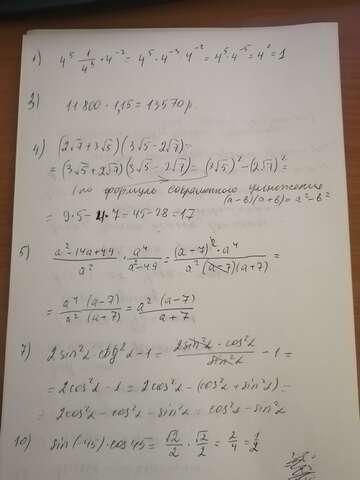 1) 4⁵ · 1/4³ · 4⁻² = 4⁵ · 4⁻³ · 4⁻² = 4⁵ · 4⁻⁵ = 4⁰ = 1
3) 11800 · 1,15 = 13570 р
4) (2√7 + 3√5)(3√5 - 2√7) =
= (3√5 + 2√7)(3√5 - 2√7) = (3√5)² - (2√7)² =
(по формуле сокращенного умножения
(a-b)(a+b) = a² - b²
= 9·5 - 4·7 = 45 - 28 = 17
5) (a² - 14a + 49)/a² · a⁴/(a² - 49) = ((a-7)² · a⁴)/(a²(a-7)(a+7)) =
= (a⁴(a-7))/(a²(a+7)) = (a²(a-7))/(a+7)
7) 2sin²α · ctg²α - 1 = (2sin²α · cos²α)/sin²α - 1 =
= 2cos²α - 1 = 2cos²α - (cos²α + sin²α) =
= 2cos²α - cos²α - sin²α = cos²α - sin²α
10) sin(-45) · cos45 = √2/2 · √2/2 = 2/4 = 1/2